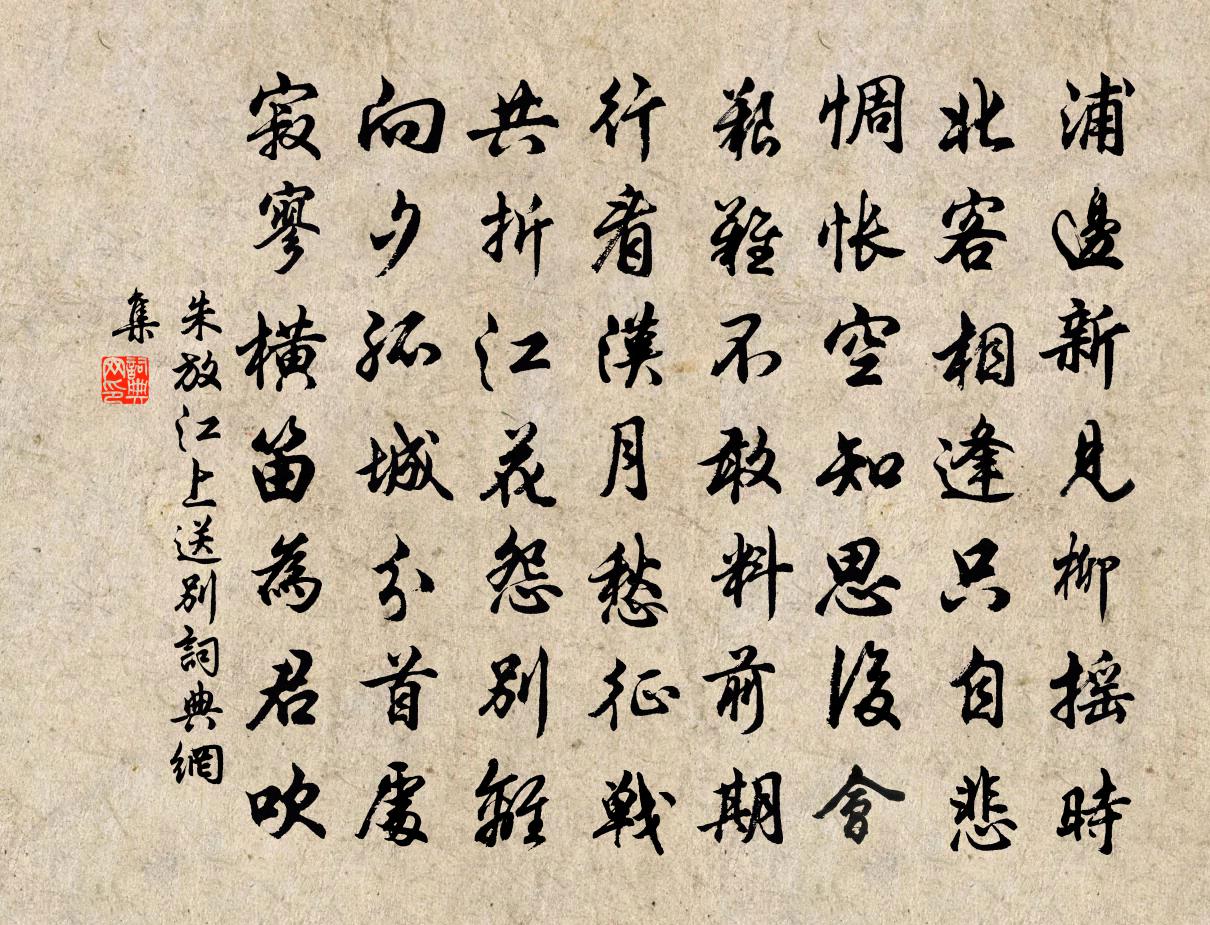 浦邊新見柳搖時
北客相逢只自悲
惆悵空知思後會
艱難不敢料前期
行看漢月愁征戰
共折江花怨別離
向夕孤城分首處
寂寥橫笛為君吹
朱放江上送別詞典網
集
詞典網印